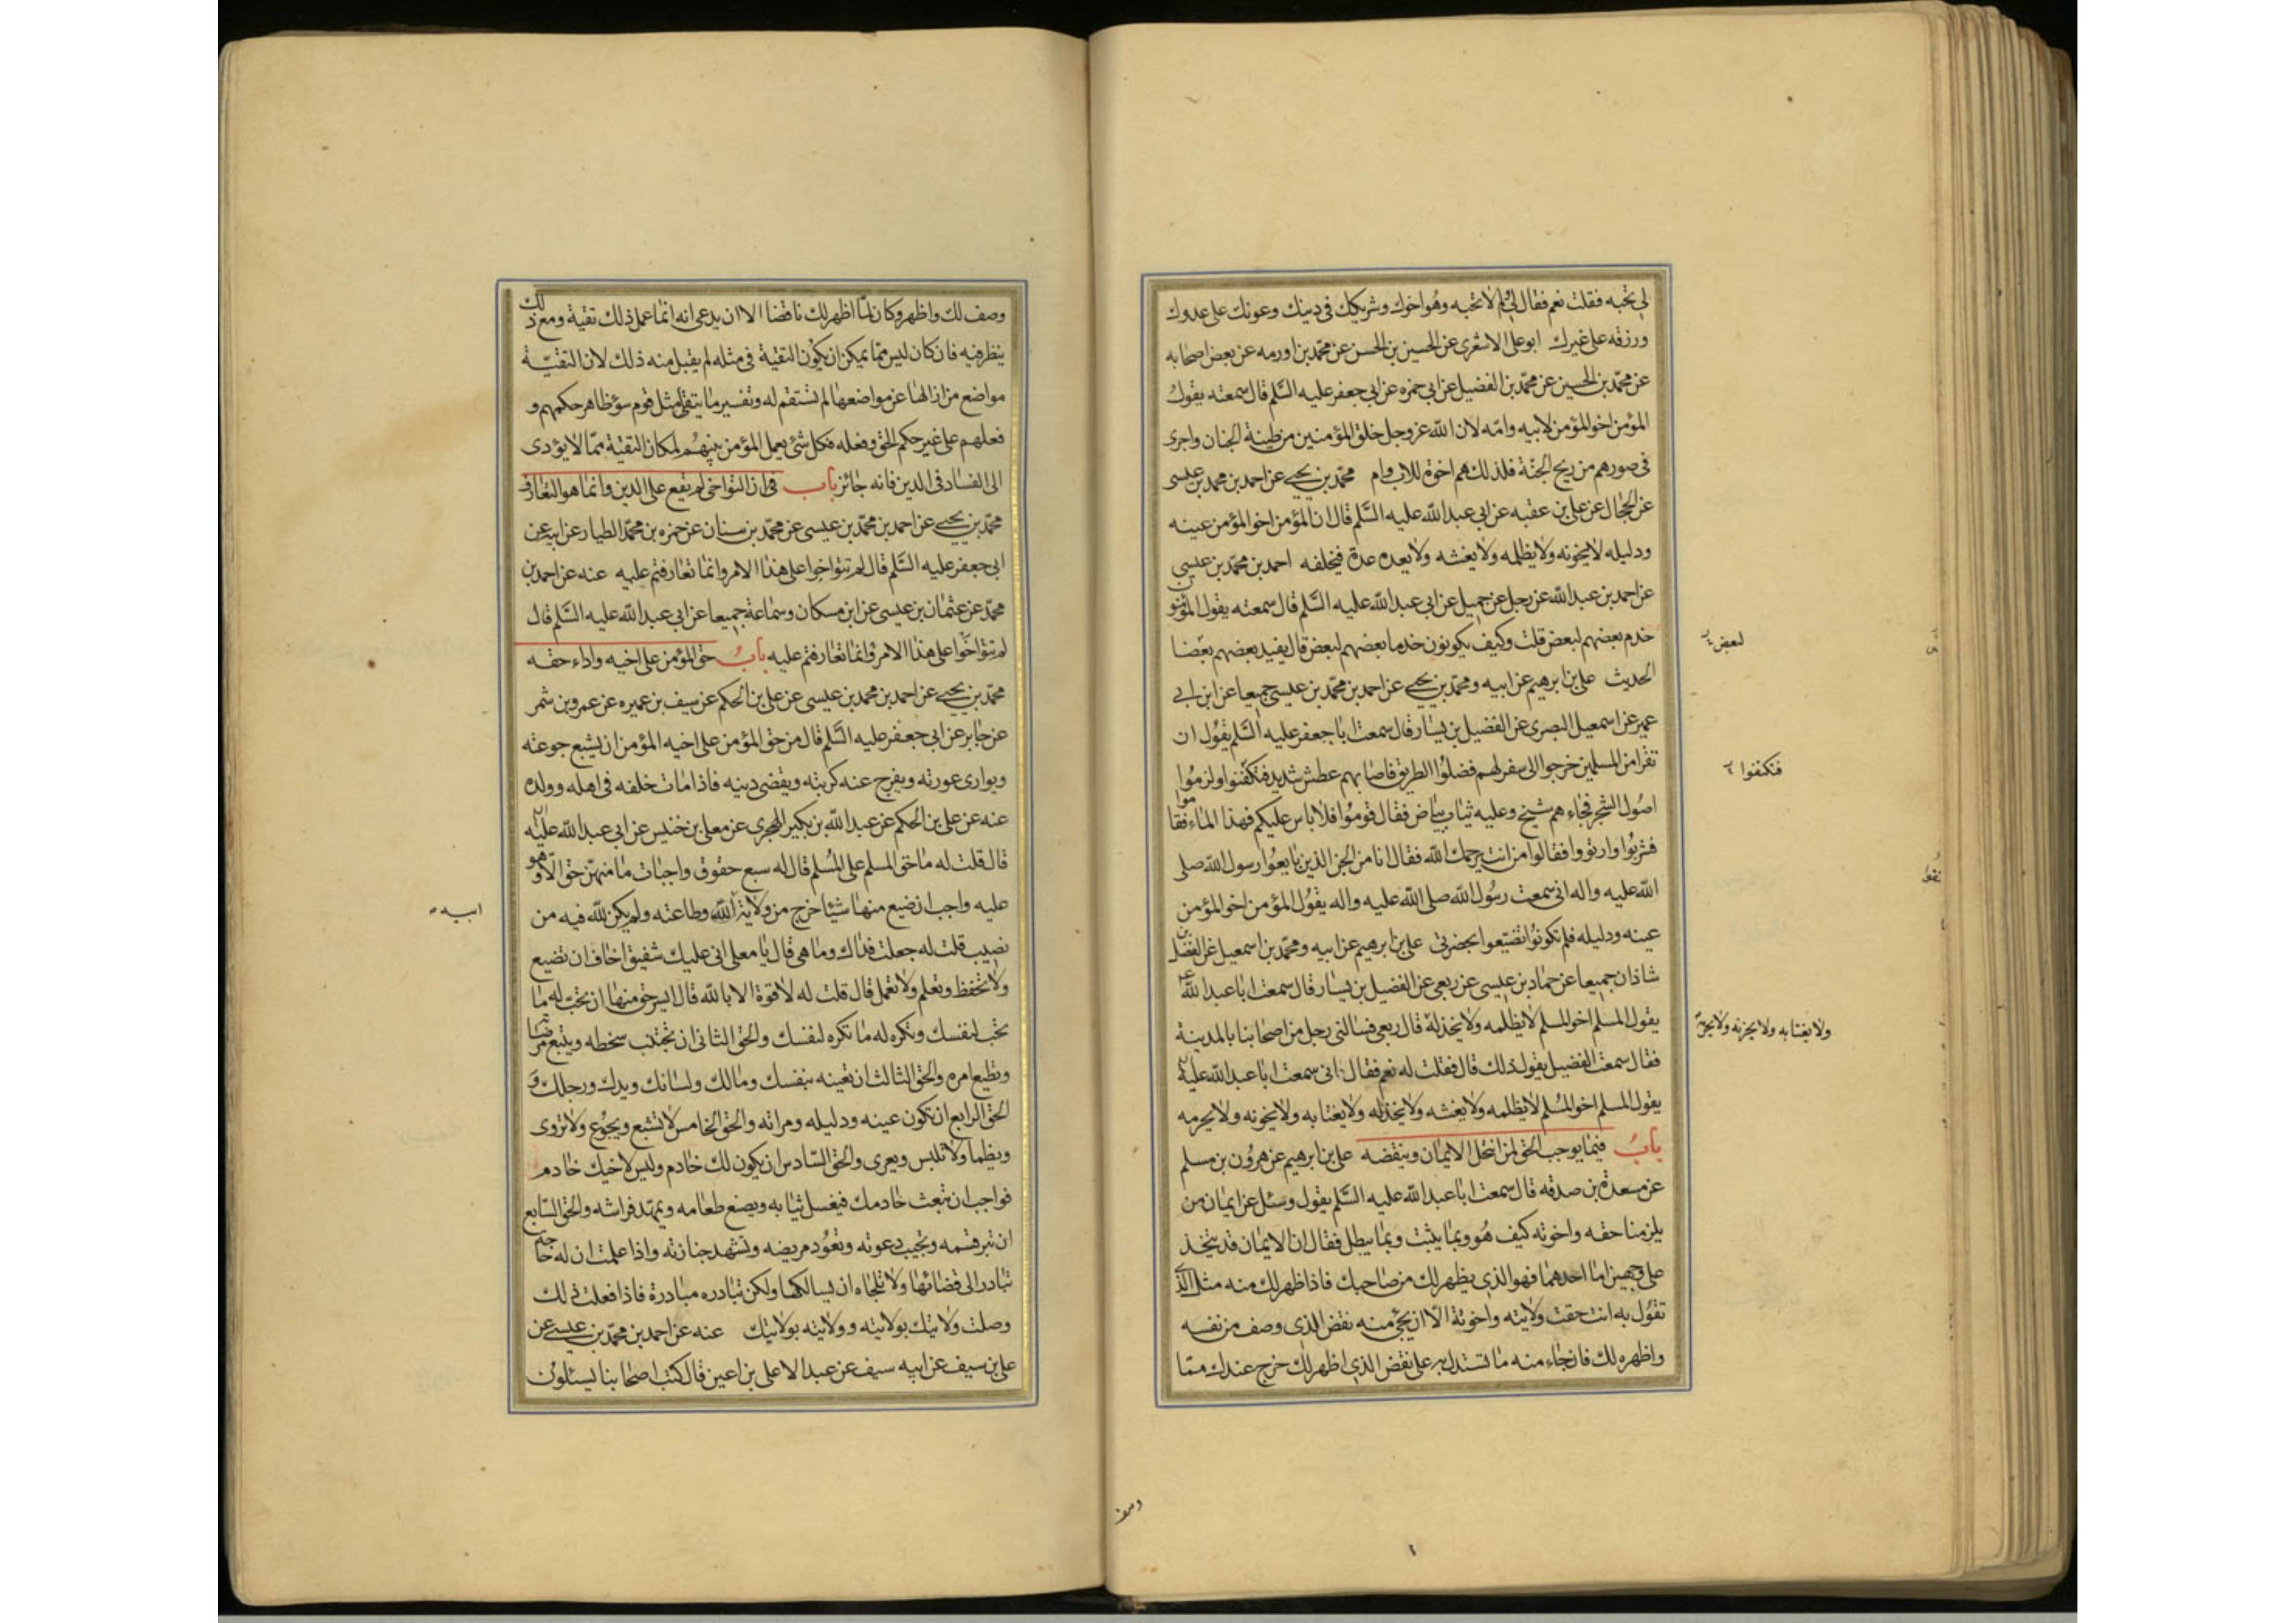 لي تحبه فقلت نعم فقال لي ولم لا تحبه وهو اخوك وشريكك في دينك وعونك على عدوك
ورزقه على غيرك ابو على الاشعرى عن الحسين بن الحسن عن محمد بن اورمه عن بعض اصحابه
عن محمد بن الحسين عن محمد بن الفضيل عن ابي حمزه عن ابي جعفر عليه السلم قال سمعته يقول
المؤمن اخو المؤمن لابيه وامه لان الله عز وجل خلق المؤمنين من طينة الجنان واجرى
في صورهم من ريح الجنة فلذلك هم اخوة لاب وام محمد بن يحيى عن احمد بن محمد بن عيسى
عن الحجال عن علي بن عقبه عن ابي عبد الله عليه السلم قال ان المؤمن اخو المؤمن عينه
ودليله لا يخونه ولا يظلمه ولا يغشه ولا يعده عدة فيخلفه احمد بن محمد بن عيسى
عن احمد بن عبد الله عن رجل عن جميل عن ابي عبد الله عليه السلم قال سمعته يقول المؤمنون
خدم بعضهم لبعض قلت وكيف يكونون خدما بعضهم لبعض قال يفيد بعضهم بعضا
لبعض
الحديث على بن ابرهيم عن ابيه ومحمد بن يحيى عن احمد بن محمد بن عيسى جميعا عن ابن ابي
عمير عن اسمعيل البصرى عن الفضيل بن يسار قال سمعت ابا جعفر عليه السلم يقول ان
نفرا من المسلمين خرجوا الى سفر لهم فضلوا الطريق فاصابهم عطش شديد فتكفنوا ولزموا
فتكنفوا
اصول الشجر فجاءهم شيخ وعليه ثياب بياض فقال قوموا فلا باس عليكم فهذا الماء فقاموا
فشربوا وارتووا فقالوا من انت يرحمك الله فقال انا من الجن الذين بايعوا رسول الله صلى
الله عليه واله انى سمعت رسول الله صلى الله عليه واله يقول المؤمن اخو المؤمن
عينه ودليله فلم تكونوا تضيعوا بحضرتي علي بن ابرهيم عن ابيه ومحمد بن اسمعيل عن الفضل بن
شاذان جميعا عن حماد بن عيسى عن ربعى عن الفضيل بن يسار قال سمعت ابا عبد الله ع
يقول المسلم اخو المسلم لا يظلمه ولا يخذله قال ربعى فسالني رجل من اصحابنا بالمدينة
ولا يغتابه ولا يخونه ولا يحرمه
فقال سمعت الفضيل يقول ذلك قال فقلت له نعم فقال انى سمعت ابا عبد الله عليه
يقول المسلم اخو المسلم لا يظلمه ولا يغشه ولا يخذله ولا يغتابه ولا يخونه ولا يحرمه
باب فيما يوجب الحق لمن انتحل الايمان وينقضه على بن ابرهيم عن هرون بن مسلم
عن مسعدة بن صدقه قال سمعت ابا عبد الله عليه السلم يقول وسئل عن ايمان من
يلزمنا حقه واخوته كيف هو وبما يثبت وبما يبطل فقال ان الايمان قد يتخذ
على وجهين اما احدهما فهو الذي يظهر لك من صاحبك فاذا ظهر لك منه مثل الذي
تقول به انت حقت ولايته واخوته الا ان يجئ منه نقض الذى وصف من نفسه
واظهره لك فان جاء منه ما تستدل به على نقض الذى اظهر لك خرج عندك مما
وصف
وصف لك واظهر وكان لما اظهر لك ناقضا الا ان يدعى انه انما عمل ذلك تقية ومع ذلك
ينظر فيه فان كان ليس مما يمكن ان يكون التقية في مثله لم يقبل منه ذلك لان للتقية
مواضع من ازالها عن مواضعها لم تستقم له وتفسير ما يتقى مثل قوم سوء ظاهر حكمهم و
فعلهم على غير حكم الحق وفعله فكل شئ يعمل المؤمن بينهم لمكان التقية مما لا يؤدى
الى الفساد فى الدين فانه جائز باب فى ان التواخى لم يقع على الدين وانما هو التعارف
محمد بن يحيى عن احمد بن محمد بن عيسى عن محمد بن سنان عن حمزه بن محمد الطيار عن ابيه عن
ابى جعفر عليه السلم قال لم تتواخوا على هذا الامر وانما تعارفتم عليه عنه عن احمد بن
محمد عن عثمان بن عيسى عن ابن مسكان وسماعة جميعا عن ابي عبد الله عليه السلم قال
لم تتواخوا على هذا الامر وانما تعارفتم عليه باب حق المؤمن على اخيه واداء حقه
محمد بن يحيى عن احمد بن محمد بن عيسى عن على بن الحكم عن سيف بن عميره عن عمرو بن شمر
عن جابر عن ابي جعفر عليه السلم قال من حق المؤمن على اخيه المؤمن ان يشبع جوعته
ويوارى عورته ويفرج عنه كربته ويقضى دينه فاذا مات خلفه فى اهله وولده
عنه عن على بن الحكم عن عبد الله بن بكير الهجرى عن معلى بن خنيس عن ابي عبد الله عليه
قال قلت له ما حق المسلم على المسلم قال له سبع حقوق واجبات ما منهن حق الا وهو
عليه واجب ان ضيع منها شيئا خرج من ولاية الله وطاعته ولم يكن لله فيه من
نصيب قلت له جعلت فداك وما هى قال يا معلى انى عليك شفيق اخاف ان تضيع
ولا تحفظ وتعلم ولا تعمل قال قلت له لا قوة الا بالله قال ايسر حق منها ان تحب له ما
تحب لنفسك وتكره له ما تكره لنفسك والحق الثانى ان تجتنب سخطه وتتبع مرضاته
وتطيع امره والحق الثالث ان تعينه بنفسك ومالك ولسانك ويدك ورجلك و
الحق الرابع ان تكون عينه ودليله ومراته والحق الخامس لا تشبع ويجوع ولا تروى
ويظما ولا تلبس ويعرى والحق السادس ان يكون لك خادم وليس لاخيك خادم
فواجب ان تبعث خادمك فيغسل ثيابه ويصنع طعامه ويمهد فراشه والحق السابع
ان تبر قسمه وتجيب دعوته وتعود مريضه وتشهد جنازته واذا علمت ان له حاجة
تبادر الى قضائها ولا تلجاه ان يسالكها ولكن تبادره مبادرة فاذا فعلت ذلك
وصلت ولايتك بولايته وولايته بولايتك عنه عن احمد بن محمد بن عيسى عن
على بن سيف عن ابيه سيف عن عبد الاعلى بن اعين قال كتب اصحابنا يسئلون